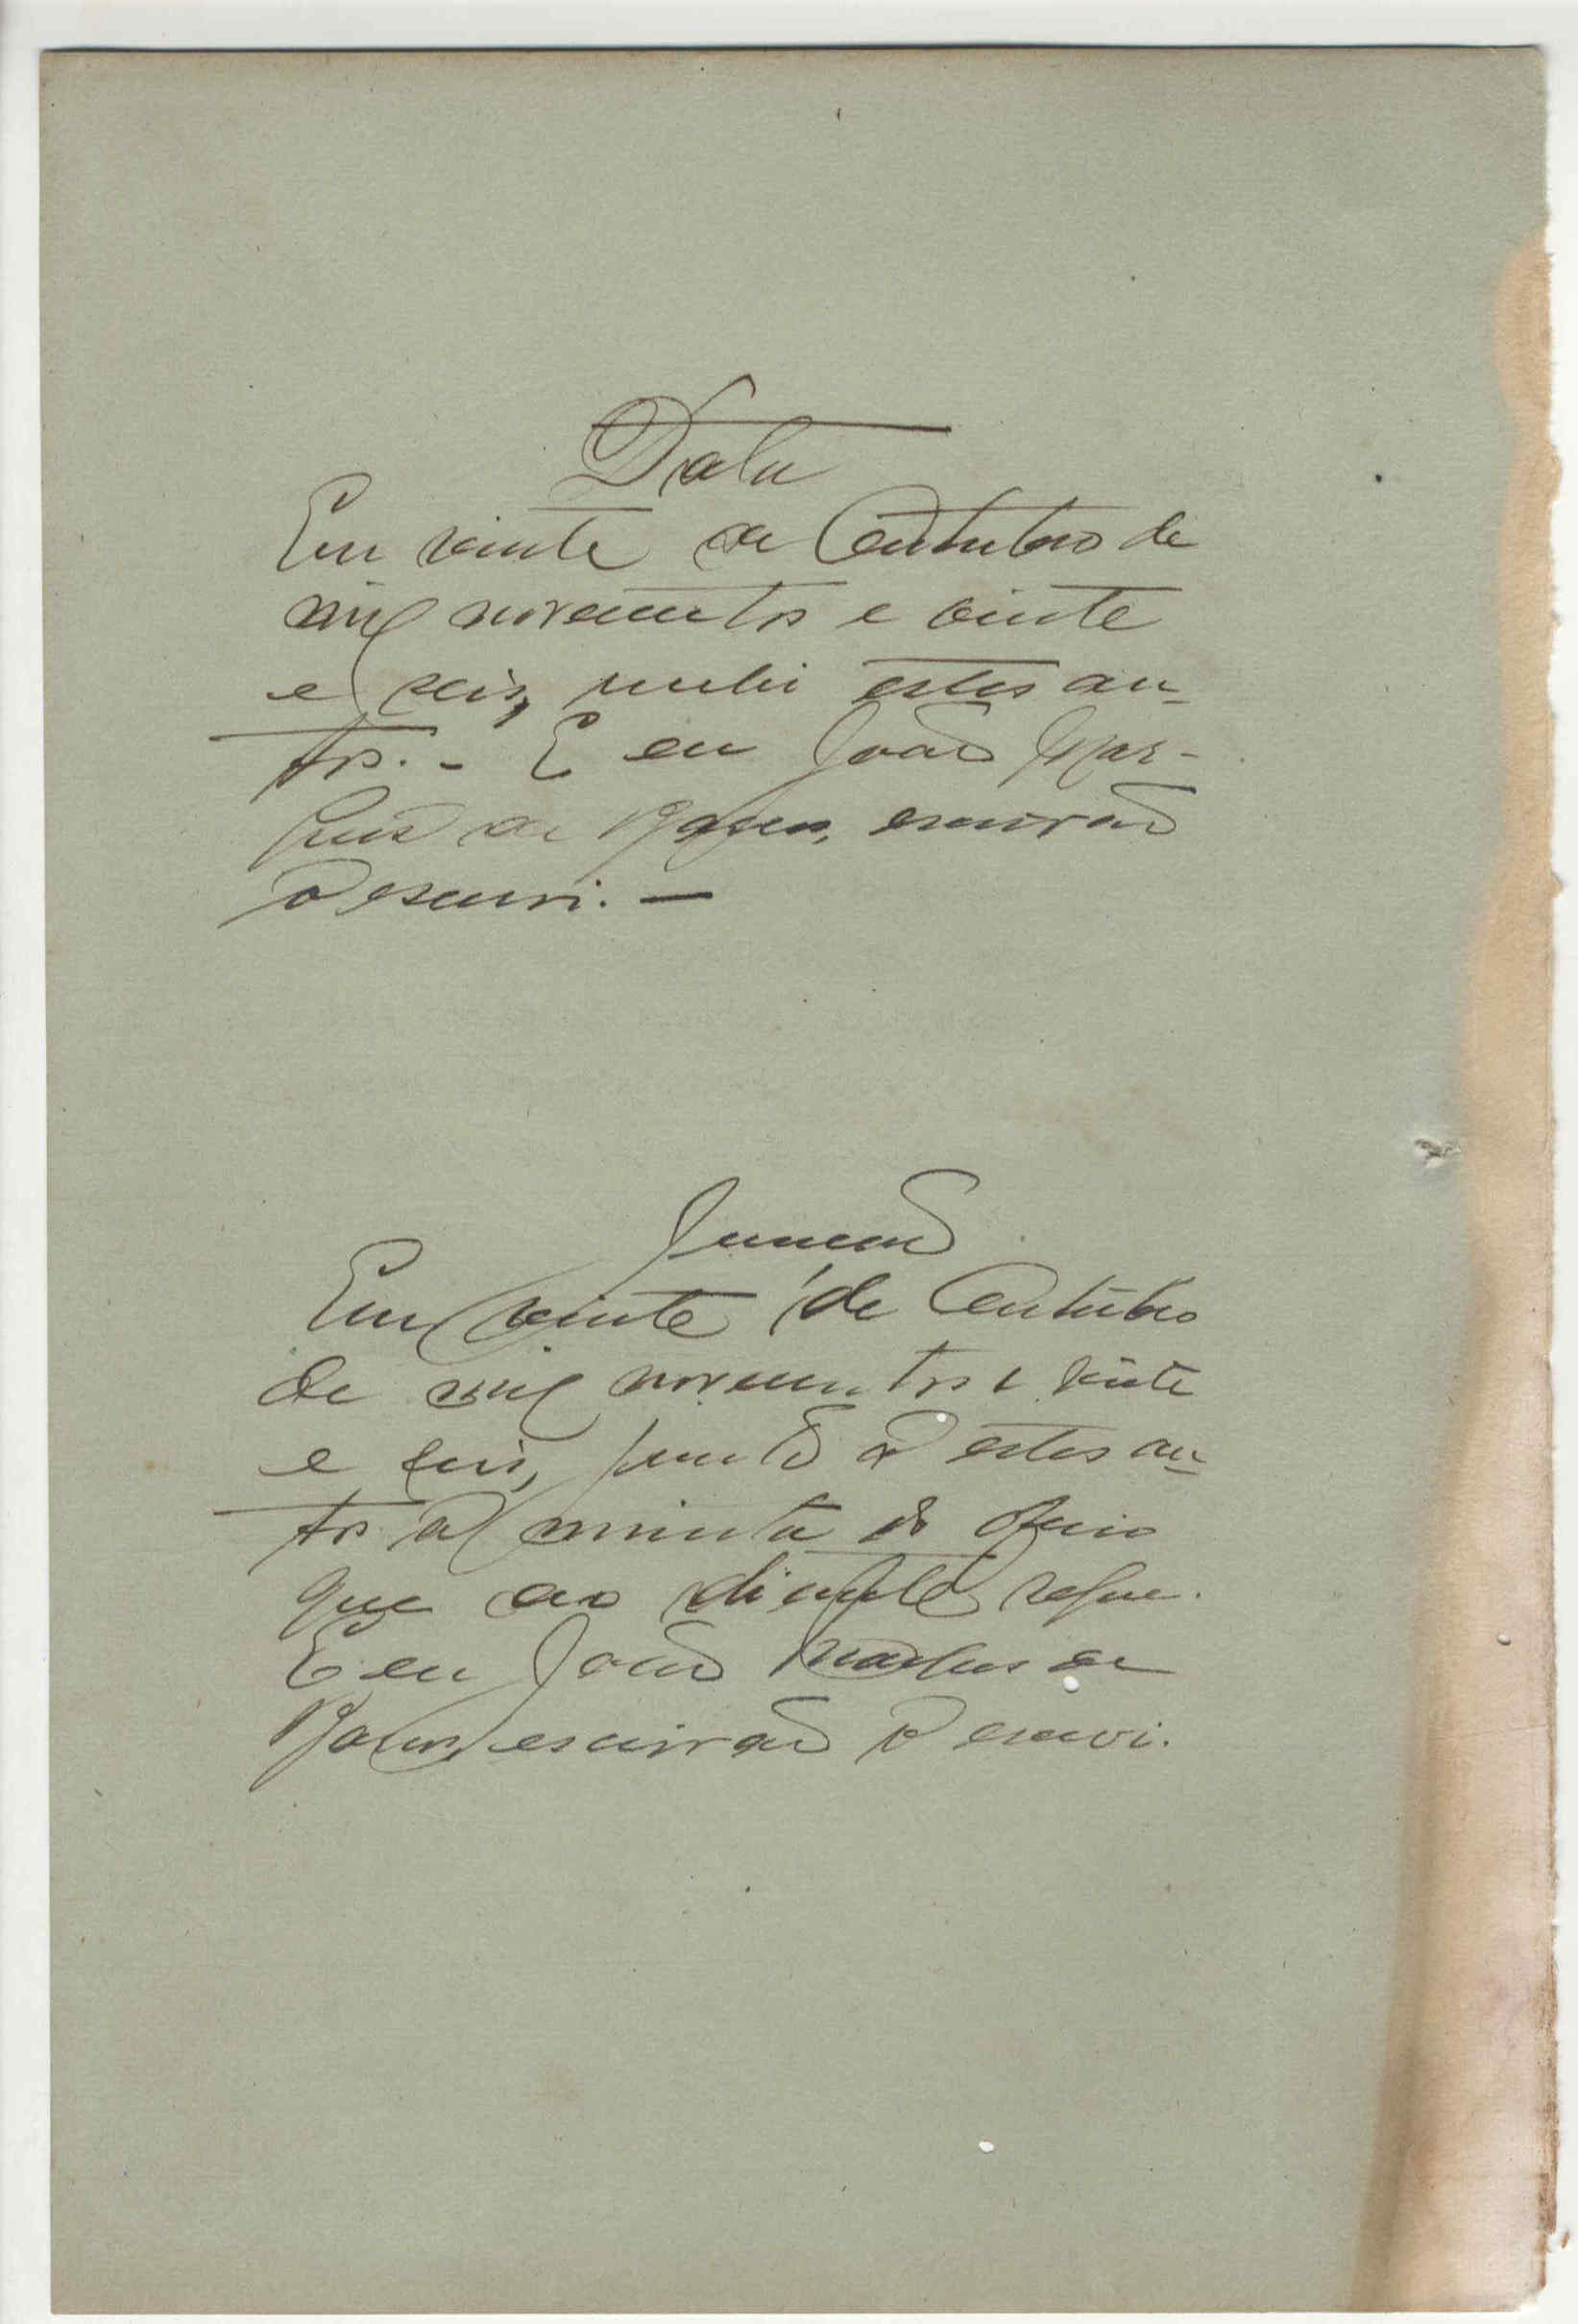 Data
Em vinte de Outubro de
mil novecentos e vinte
e seis, recebi estes au-
tos. - E eu João Mar-
ques de escrivão
o escrevi. -
Juncção
Em vinte de Outubro
de mil novecentos e vinte
e seis, junto a estes au-
tos a minuta do officio
que ao diante segue.
E eu João Marques de
escrivão o escrevi.